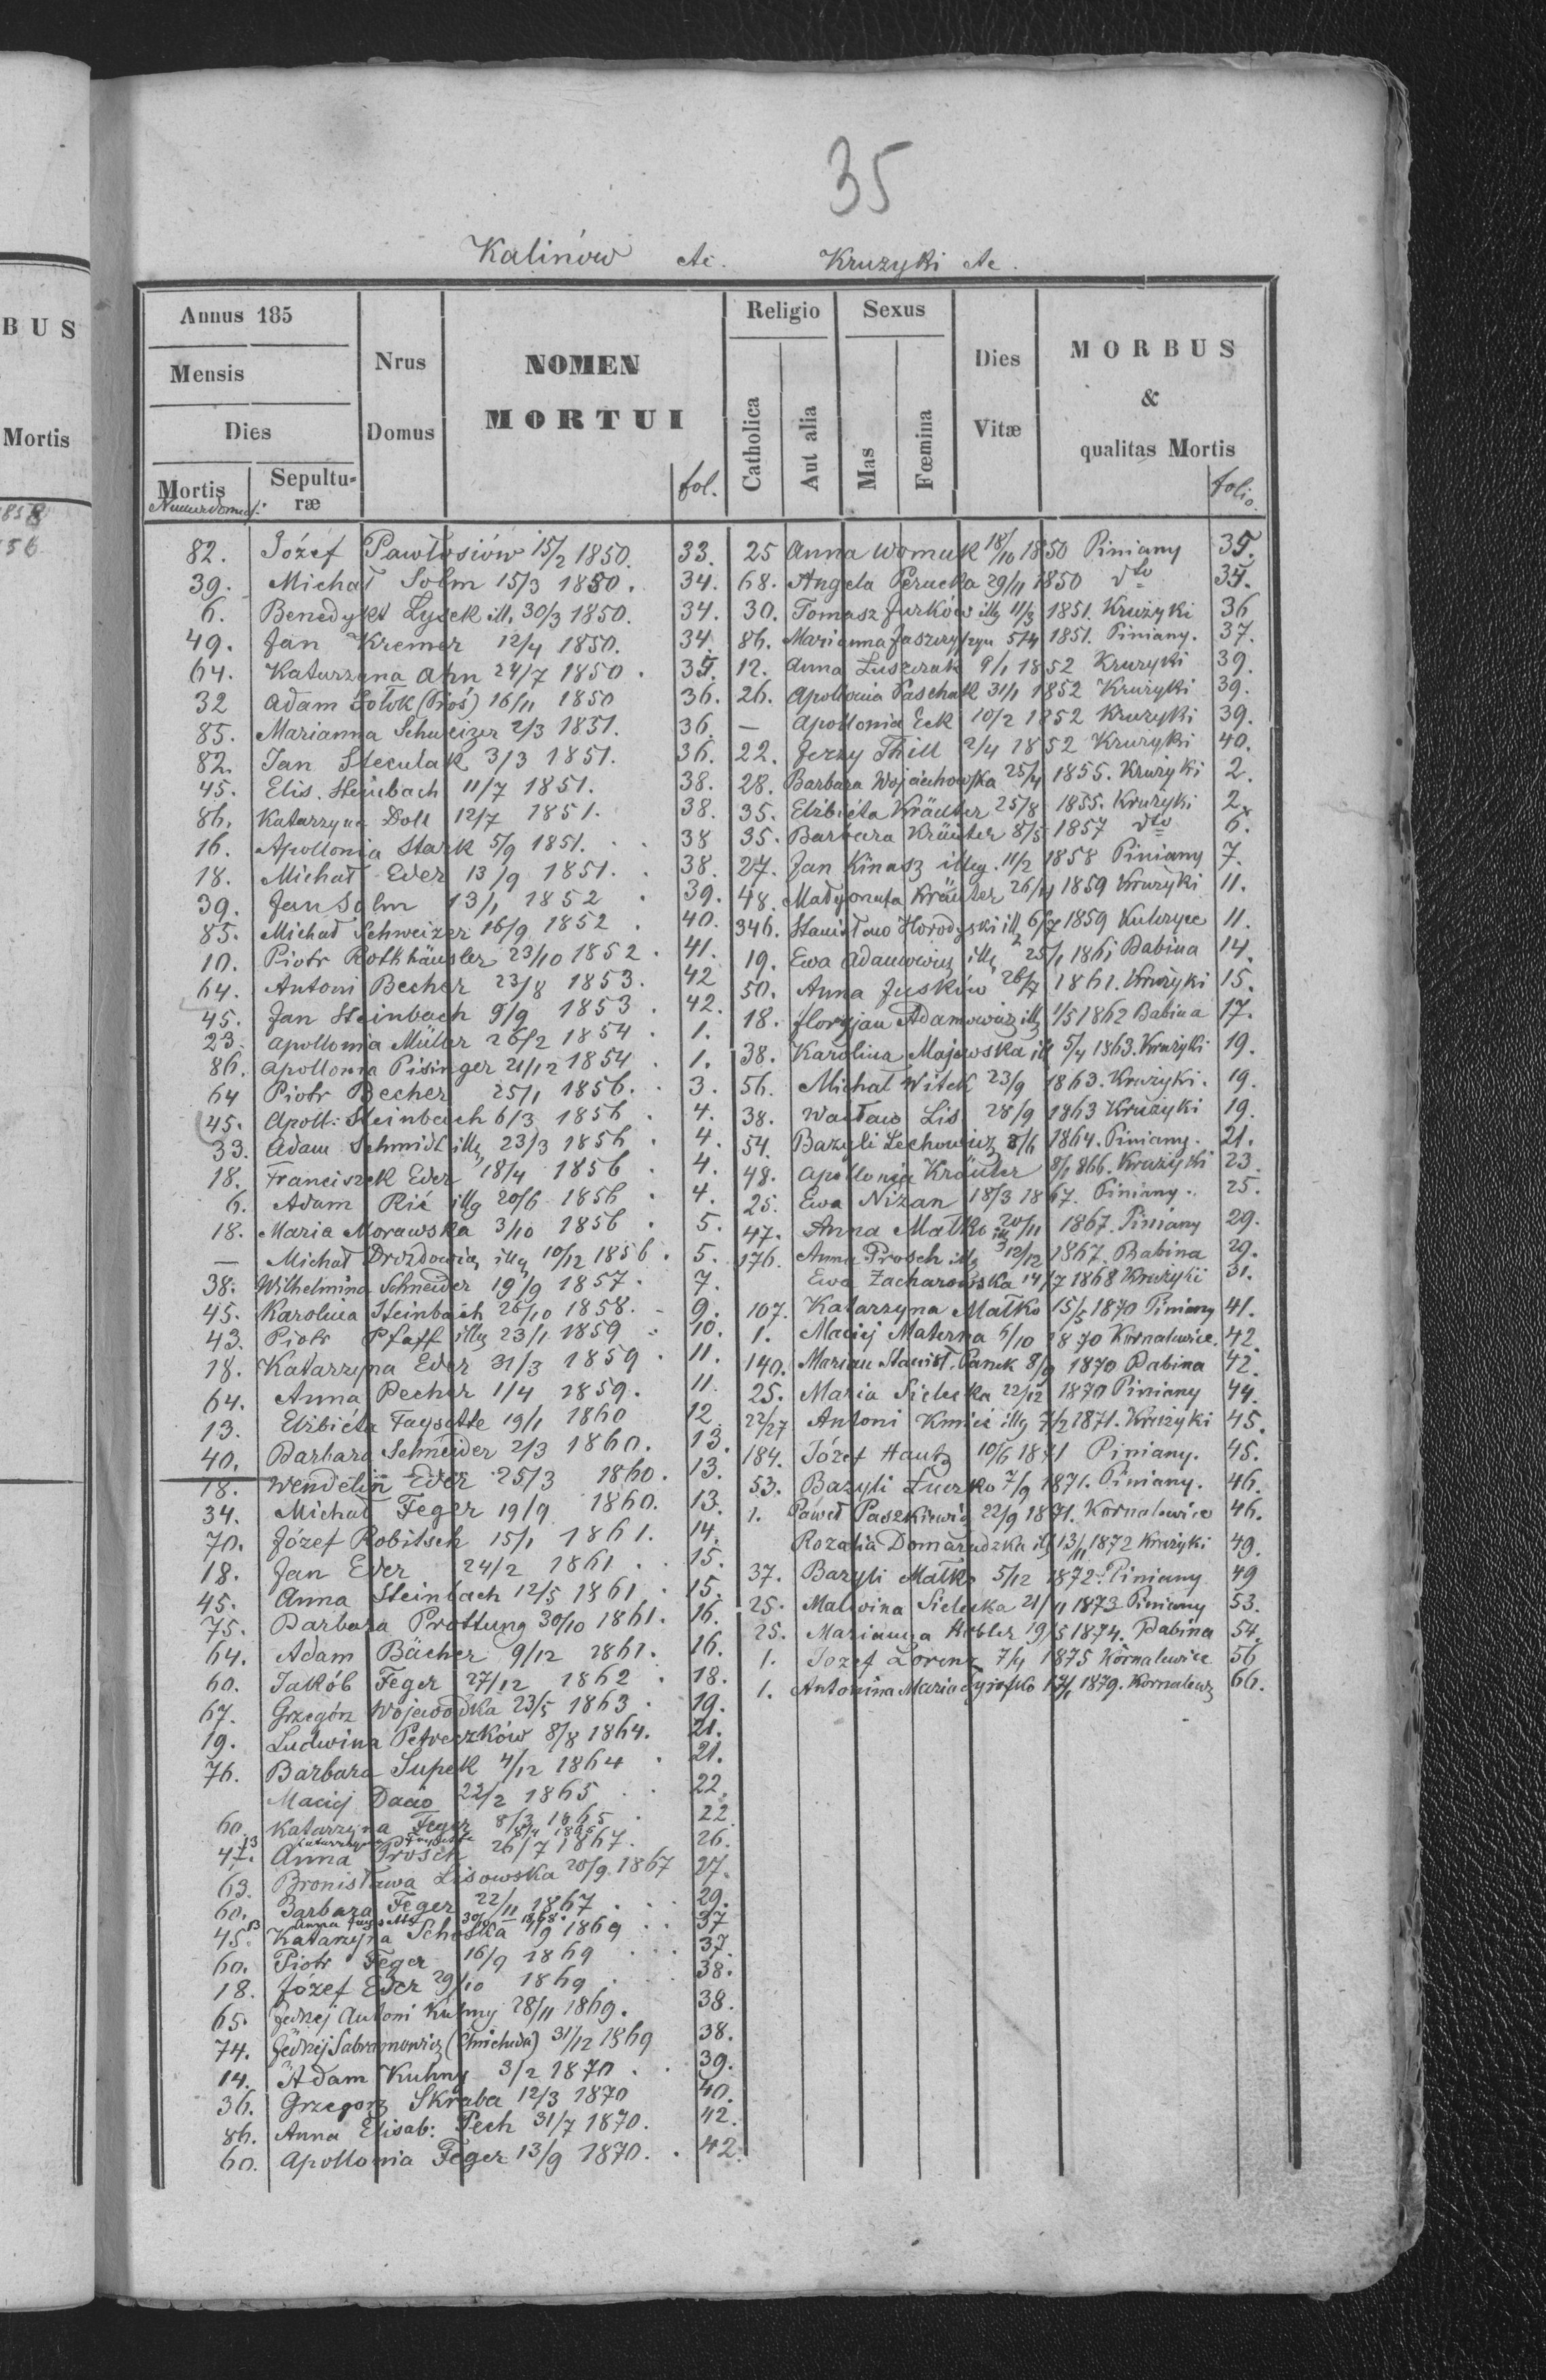 35
Kalinów etc. Kruzyki etc.
BUS
Mortis
Annus 185
Mensis
Dies
Mortis
Numer domus.
Sepultu-
ræ
Nrus
Domus
NOMEN
MORTUI
fol.
Religio
Catholica
Aut alia
Sexus
Mas
Fœmina
Dies
Vitæ
MORBUS
&
qualitas Mortis
folio.
82. Józef Pawłosiów 15/2 1850. 33.
39. Michał Solm 15/3 1850. 34.
6. Benedykt Łysek ill. 30/3 1850. 34.
49. Jan Kremer 12/4 1850. 34.
64. Katarzyna Ahn 24/7 1850. 35.
32 Adam 16/11 1850 36.
85. Marianna Schweizer 2/3 1851. 36.
82. Jan Steculak 3/3 1851. 36.
45. Elis. Steinbach 11/7 1851. 38.
86. Katarzyna Doll 12/7 1851. 38.
16. Apollonia Stark 5/9 1851. 38
18. Michał Eder 13/9 1851. 38.
39. Jan Solm 13/1 1852 39.
85. Michał Schweizer 16/9 1852. 40.
10. Piotr Rothhäusler 23/10 1852. 41.
64. Antoni Becher 23/8 1853. 42
45. Jan Steinbach 9/9 1853. 42.
23. Apollonia Müller 26/2 1854. 1.
86. Apollonia Pisinger 21/12 1854. 1.
64 Piotr Becher 25/1 1856. 3.
45. Apoll: Steinbach 6/3 1856. 4.
33. Adam Schmidt illg 23/3 1856. 4.
18. Franciszek Eder 18/4 1856. 4.
6. Adam Rić illg 20/6 1856. 4.
18. Maria Morawska 3/10 1856. 5.
— Michał Drozdowicz illg 10/12 1856. 5.
38. Wilhelmina Schneider 19/9 1857. 7.
45. Karolina Steinbach 26/10 1858. 9.
43. Piotr Pfaff illg 23/1 1859 10.
18. Katarzyna Eder 31/3 1859. 11.
64. Anna Pecher 1/4 1859. 11.
13. Elżbieta Faysette 19/1 1860 12
40. Barbara Schneider 2/3 1860. 13.
18. Wendelin Eder 25/3 1860. 13.
34. Michał Feger 19/9 1860. 13.
70. Józef Robitsch 15/1 1861. 14.
18. Jan Eder 24/2 1861. 15.
45. Anna Steinbach 12/5 1861. 15.
75. Barbara Prottung 30/10 1861. 16.
64. Adam Bächer 9/12 1861. 16.
60. Jakób Feger 27/12 1862. 18.
67. Grzegórz Wojewódka 23/5 1863. 19.
19. Ludwina Petreczków 8/8 1864. 21.
76. Barbara Supek 4/12 1864. 21.
Maciej Dacio 22/2 1865 22
60 Katarzyna Feger 8/3 1865 22
13 Katarzyna Faysette 8/4 1865
47. Anna Prosch 26/7 1867. 26.
63. Bronisława Lisowska 20/9. 1867 27.
60. Barbara Feger 22/11 1867. 29.
13 Anna Faysette 1868.
45. Katarzyna Schoska 1/9 1869 37
60. Piotr Feger 16/9 1869 37.
18. Józef Eder 29/10 1869 38.
65. Jędrzej Antoni Kuhny 28/11 1869. 38.
74. Jędrzej Sabramowicz 31/12 1869 38.
14. Adam Kuhny 3/2 1870 39.
36. Grzegorz Skraba 12/3 1870 40.
86. Anna Elisab: Pech 31/7 1870. 42.
60. Apollonia Feger 13/9 1870. 42.
25 Anna Womuk 18/10 1850 Piniany 35.
68. Angela Perucka 29/11 1850 dto 35.
30. Tomasz Jurków illg 11/3 1851. Krużyki 36
86. Marianna 5/4 1851. Piniany. 37.
12. Anna Łuszczak 9/1 1852 Krużyki 39.
26. Apollonia Paschak 31/1 1852 Krużyki 39.
— Apollonia Eck 10/2 1852 Krużyki 39.
22. Jerzy Thill 2/4 1852 Krużyki 40.
28. Barbara Wojciechowska 25/4 1855. Krużyki 2.
35. Elżbiéta Kräuter 25/8 1855. Krużyki 2.
35. Barbara Kräuter 8/5 1857 dto 6.
27. Jan Kinasz illeg. 11/2 1858 Piniany 7.
48. Małgorzata Kräuter 26/4 1859 Krużyki 11.
346. Stanisław Horodyski illg 6/7 1859 Kulczyce 11.
19. Ewa Adamowicz illg 25/1 1861 Babina 14.
50. Anna Juśków 26/7 1861. Krużyki 15.
18. Floryjan Adamowicz illg 1/5 1862 Babina 17.
38. Karolina Majewska ill 5/4 1863. Krużyki 19.
56. Michał Witek 23/9 1863. Krużyki. 19.
38. Wacław Lis 28/9 1863 Krużyki 19.
54. Bazyli Lechowicz 1864. Piniany. 21.
48. Apollonia Kräuter 8/1 866. Krużyki 23.
25. Ewa Niżan 18/3 1867. Piniany. 25.
47. Anna Matko ill 20/11 1867. Piniany 29.
176. Anna Prosch illg 12/12 1867. Babina 29.
Ewa Zacharowska 14/7 1868 Krużyki 31.
107. Katarzyna Matko 15/5 1870 Piniany 41.
1. Maciej Materna 6/10 1870 Kornalowice. 42.
140. Marian Stanisł. Panek 8/9 1870 Babina 42.
25. Maria Sielecka 22/12 1870 Piniany 44.
22/27 Antoni Kmicić illg 7/2 1871. Krużyki 45.
184. Józef Hautz 10/6 1871 Piniany. 45.
53. Bazyli Łuczko 7/9 1871. Piniany. 46.
1. Paweł Paszkiewicz 22/9 1871. Kornalowice 46.
Rozalia Domaradzka illg 13/11 1872 Krużyki 49.
37. Bazyli Matko 5/12 1872. Piniany 49
25. Malwina Sielecka 21/11 1873 Piniany 53.
25. Marianna Hobler 19/5 1874. Babina 54.
1. Józef Lorenz 7/4 1875 Kornalowice 56
1. Antonina Maria 1879. Kornalowice 66.